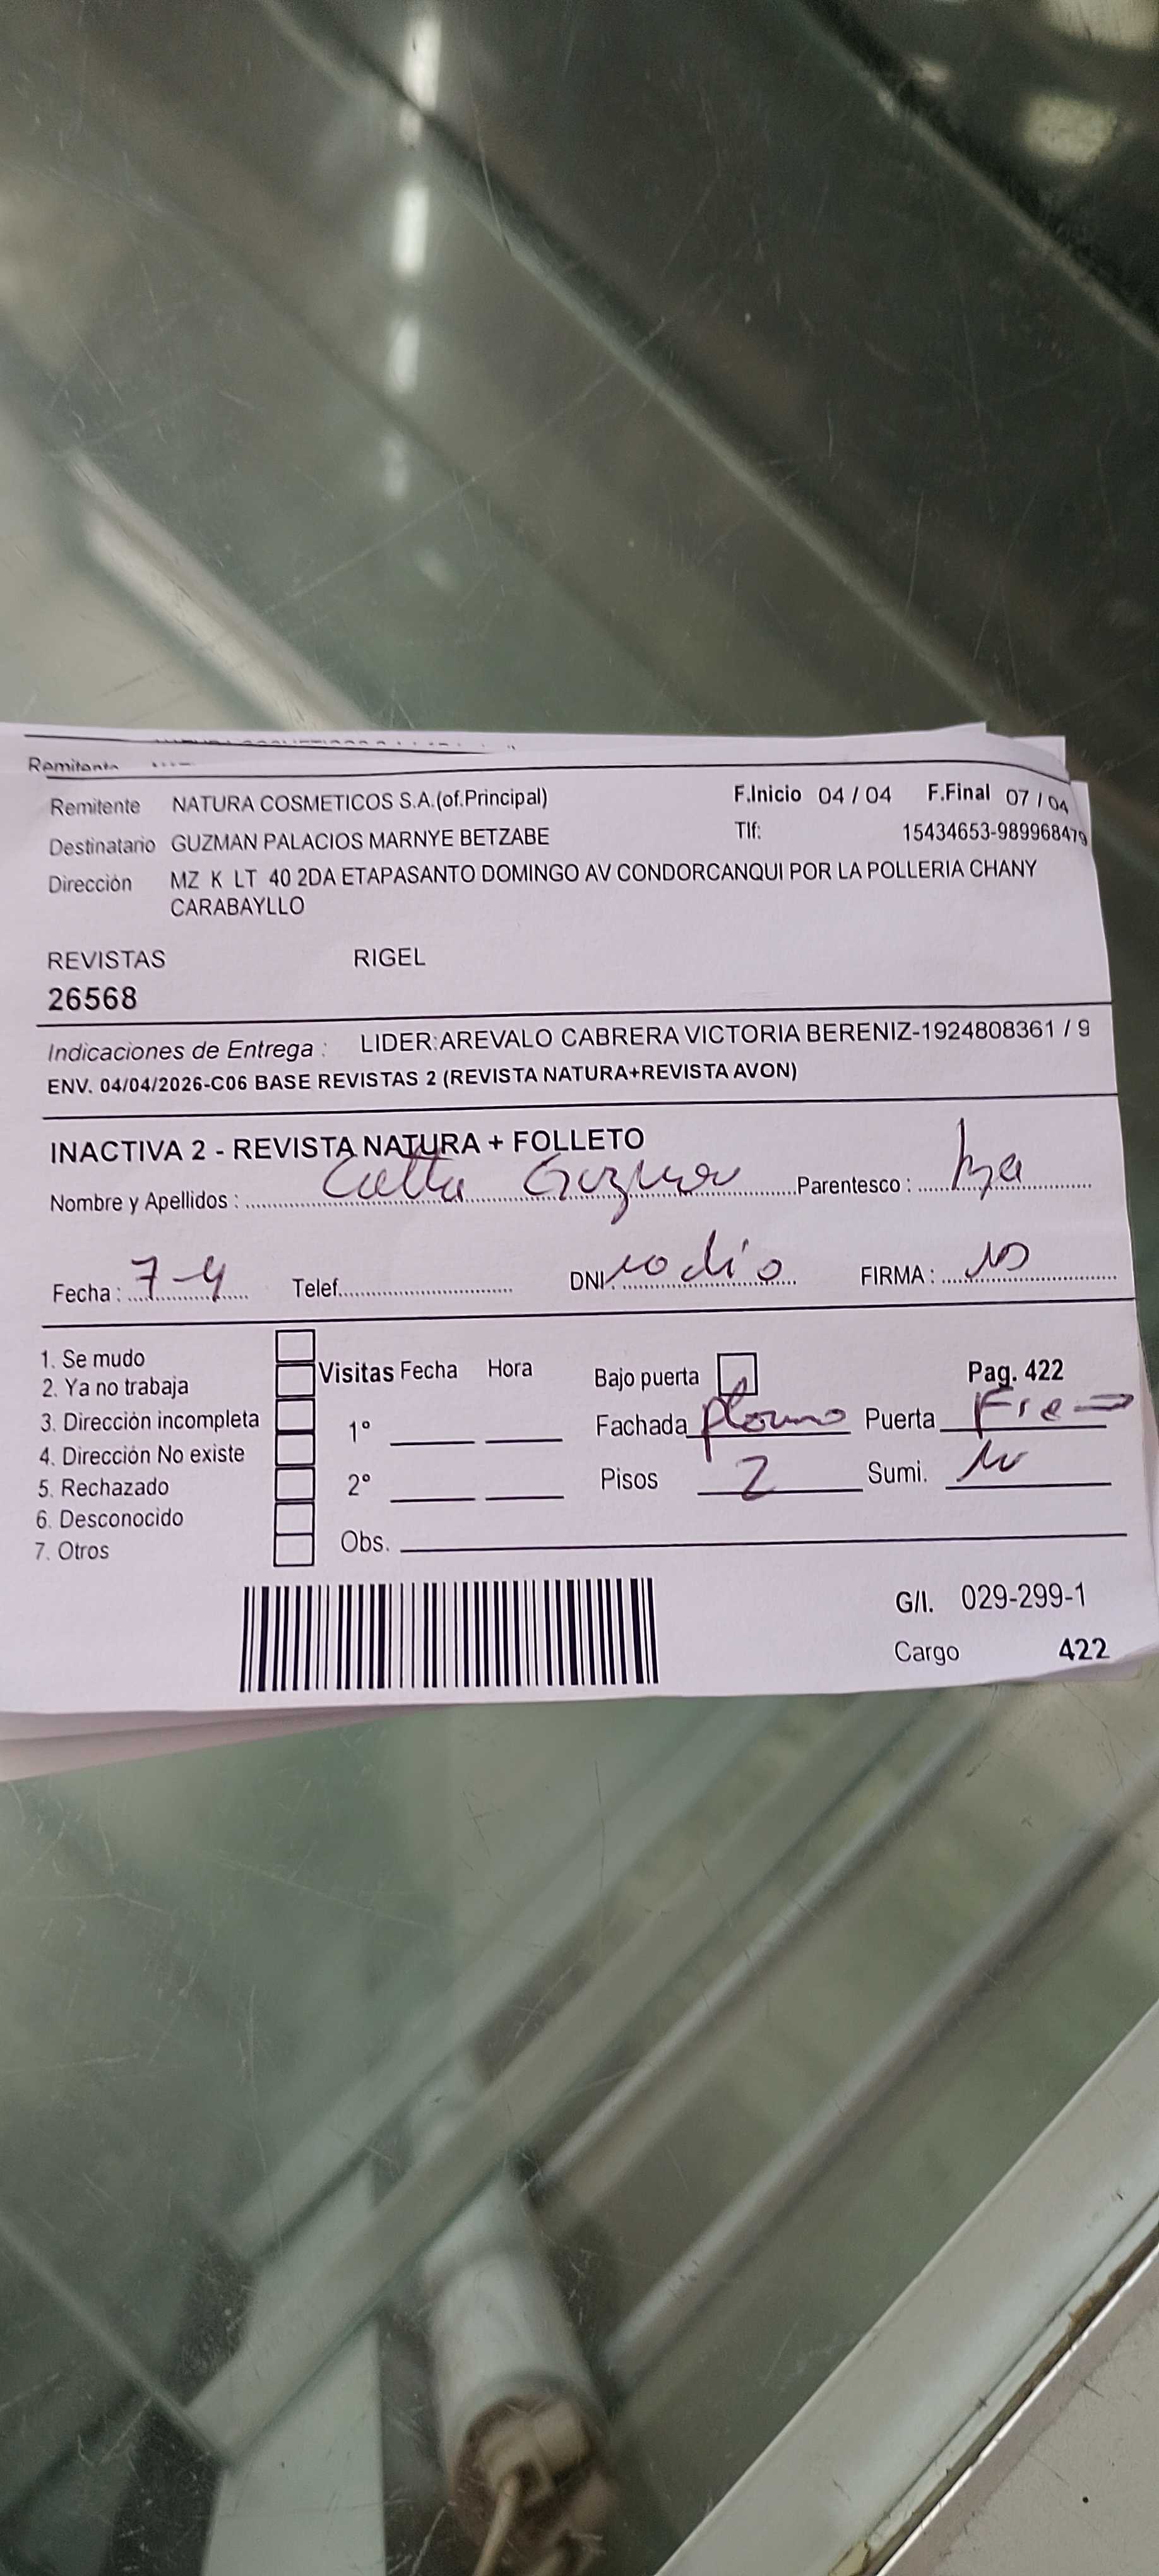 Remitente
Remitente NATURA COSMETICOS S.A.(of.Principal) F.Inicio 04 / 04 F.Final 07 / 04
Destinatario GUZMAN PALACIOS MARNYE BETZABE Tlf: 15434653-989968479
Dirección MZ K LT 40 2DA ETAPASANTO DOMINGO AV CONDORCANQUI POR LA POLLERIA CHANY
CARABAYLLO
REVISTAS RIGEL
26568
Indicaciones de Entrega : LIDER:AREVALO CABRERA VICTORIA BERENIZ-1924808361 / 9
ENV. 04/04/2026-C06 BASE REVISTAS 2 (REVISTA NATURA+REVISTA AVON)
INACTIVA 2 - REVISTA NATURA + FOLLETO
Nombre y Apellidos : Guzman Parentesco :
Fecha : 7-4 Telef. DNI: no dio FIRMA :
1. Se mudo
2. Ya no trabaja
3. Dirección incompleta
4. Dirección No existe
5. Rechazado
6. Desconocido
7. Otros
Visitas Fecha Hora Bajo puerta Pag. 422
1° Fachada plomo Puerta Fie
2° Pisos 2 Sumi.
Obs.
G/I. 029-299-1
Cargo 422